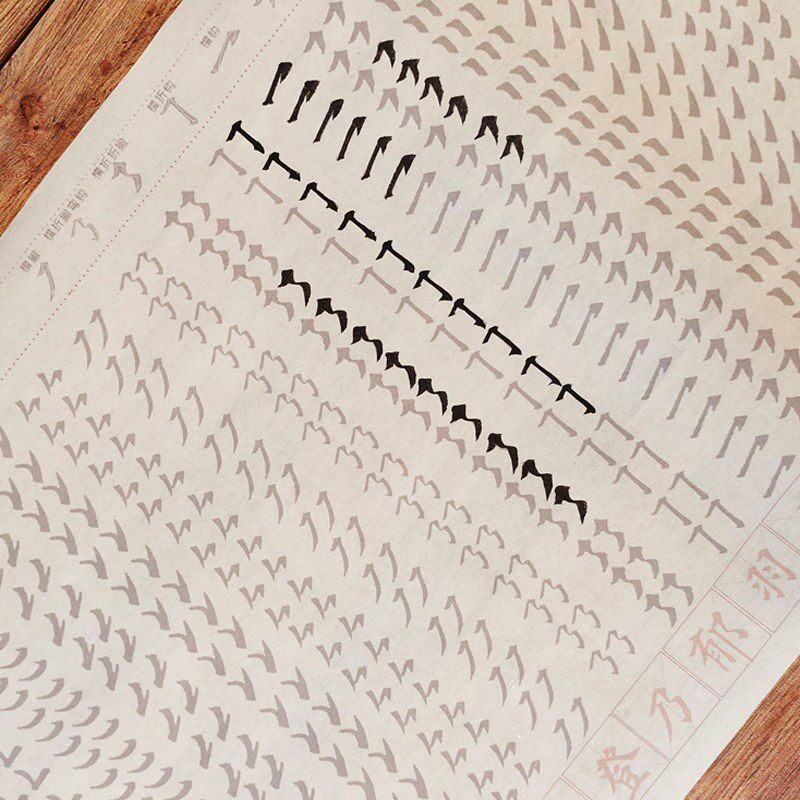 横钩
横折钩
横折折撇
横折撇弯钩
横撇
羽
乃
登